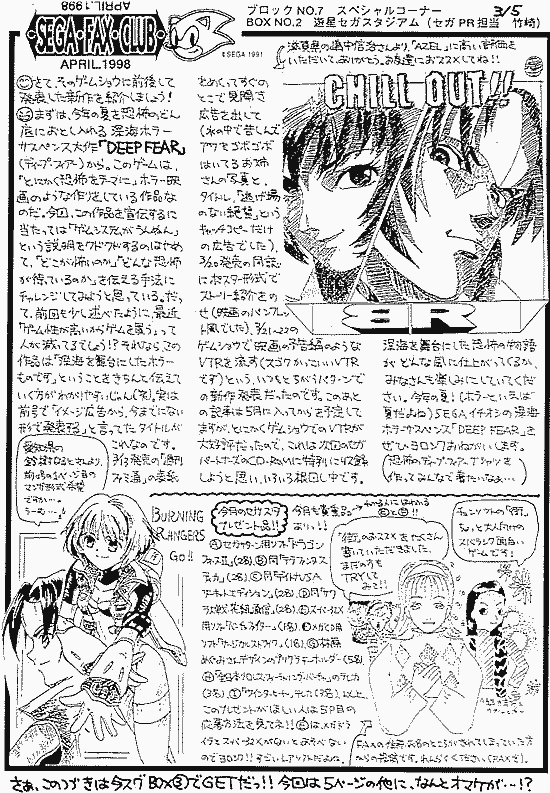 APRIL.1998
SEGA・FAX・CLUB
APRIL.1998
©SEGA 1991
ブロックNO.7 スペシャルコーナー 3/5
BOX NO.2 遊星セガスタジアム(セガPR担当 竹崎)
滋賀県の
さんより、「AZEL」に高い評価を
いただいて、ありがとう。お友達におススメしてね!!
CHILL OUT!!
BR
さて、そのゲームショウに前後して
発表した新作を紹介しましょう!
まずは、今年の夏を恐怖のどん
底におとし入れる深海ホラー
サスペンス大作「DEEP FEAR」
(ディープ・フィアー)から。このゲームは、
「とにかく恐怖をテーマに」ホラー映
画のような作りをしている作品な
のだ。今回、この作品を宣伝するに
当たっては「ゲームシステムがうんぬん」
という説明をクドクドするのはやめ
て、「どこが怖いのか」「どんな恐怖
が待っているのか」を伝える手法に
チャレンジしてみようと思っている。だっ
て、前回も少し述べたように、最近
「ゲーム性が高いからゲームを買う」って
人が減ってるでしょう!?それなら、この
作品は「深海を舞台にしたホラー
ものです」ということをきちんと伝えて
いく方がわかりやすいじゃん(笑)。実は
前号で「イメージ広告から、今までにない
形で発表する」と言ってたタイトルが
これなのです。
3/13発売の「週刊
ファミ通」の表紙
をめくってすぐの
とこで見開き
広告を出して
(水の中で苦しんで
アワをゴボゴボ
はいてるお姉
さんの写真と、
タイトル、「逃げ場
のない絶望」という
キャッチコピーだけ
の広告でした)、
3/20発売の同誌
にポスター形式で
ストーリー紹介をの
せ(映画のパンフレッ
ト風でした)、3/21〜22の
ゲームショウで映画の予告編のような
VTRを流す(スゴクかっこいいVTR
です)という、いつもとちがうパターンで
の新作発表だったのです。このあと
の記事は5月に入ってからを予定して
ますが、とにかくゲームショウでのVTRが
大好評だったので、これは次回のセガ
パートナーズのCD-ROMに特別に収録
しようと思い、いろいろ根回し中です。
深海を舞台にした恐怖の物語
がどんな風に仕上がってくるか、
みなさんも楽しみにしていてくだ
さい。今年の夏!(ホラーといえば
夏だよね)SEGAイチオシの深海
ホラーサスペンス「DEEP FEAR」を
ぜひヨロシクおねがいします。
(恐怖のディープ・フィアーTシャツを
作ってみんなで着たいなぁ…)
愛知県の
マンガ形式希望
ですか…。
うーむ…
BURNING
RANGERS
Go!!
今月のセガスタ
プレゼント品!!
今月も貴重品
ぞろい!!
Ⓐセガサターン用ソフト「ドラゴン
フォースⅡ」(2名)、Ⓑ同「グランファンタズ
同「デイトナUSA
サーキットエディション」(2名)、Ⓓ同「サクラ
大戦花組通信」(2名)、Ⓔスーパー32X
用ソフト
(1名)、Ⓕメガドラ用
(1名)、
デザインの「プリクラキーホルダー」(5名)
(3名)、Ⓘ「ウィンターヒート」テレカ(3名)、以上、
このプレゼントがほしい人はBP目の
応募方法を見てネ!!
「街」のおススメをたくさん
書いていただきました。
まだの方も
TRYして
みて!!
チュンソフトの「街」、
ちょっと大人向けの
スバラシク面白い
ゲームです!
さぁ、このつづきは今スグBOX③でGETだっ!!今回は5ページの他に、なんとオマケが…!?